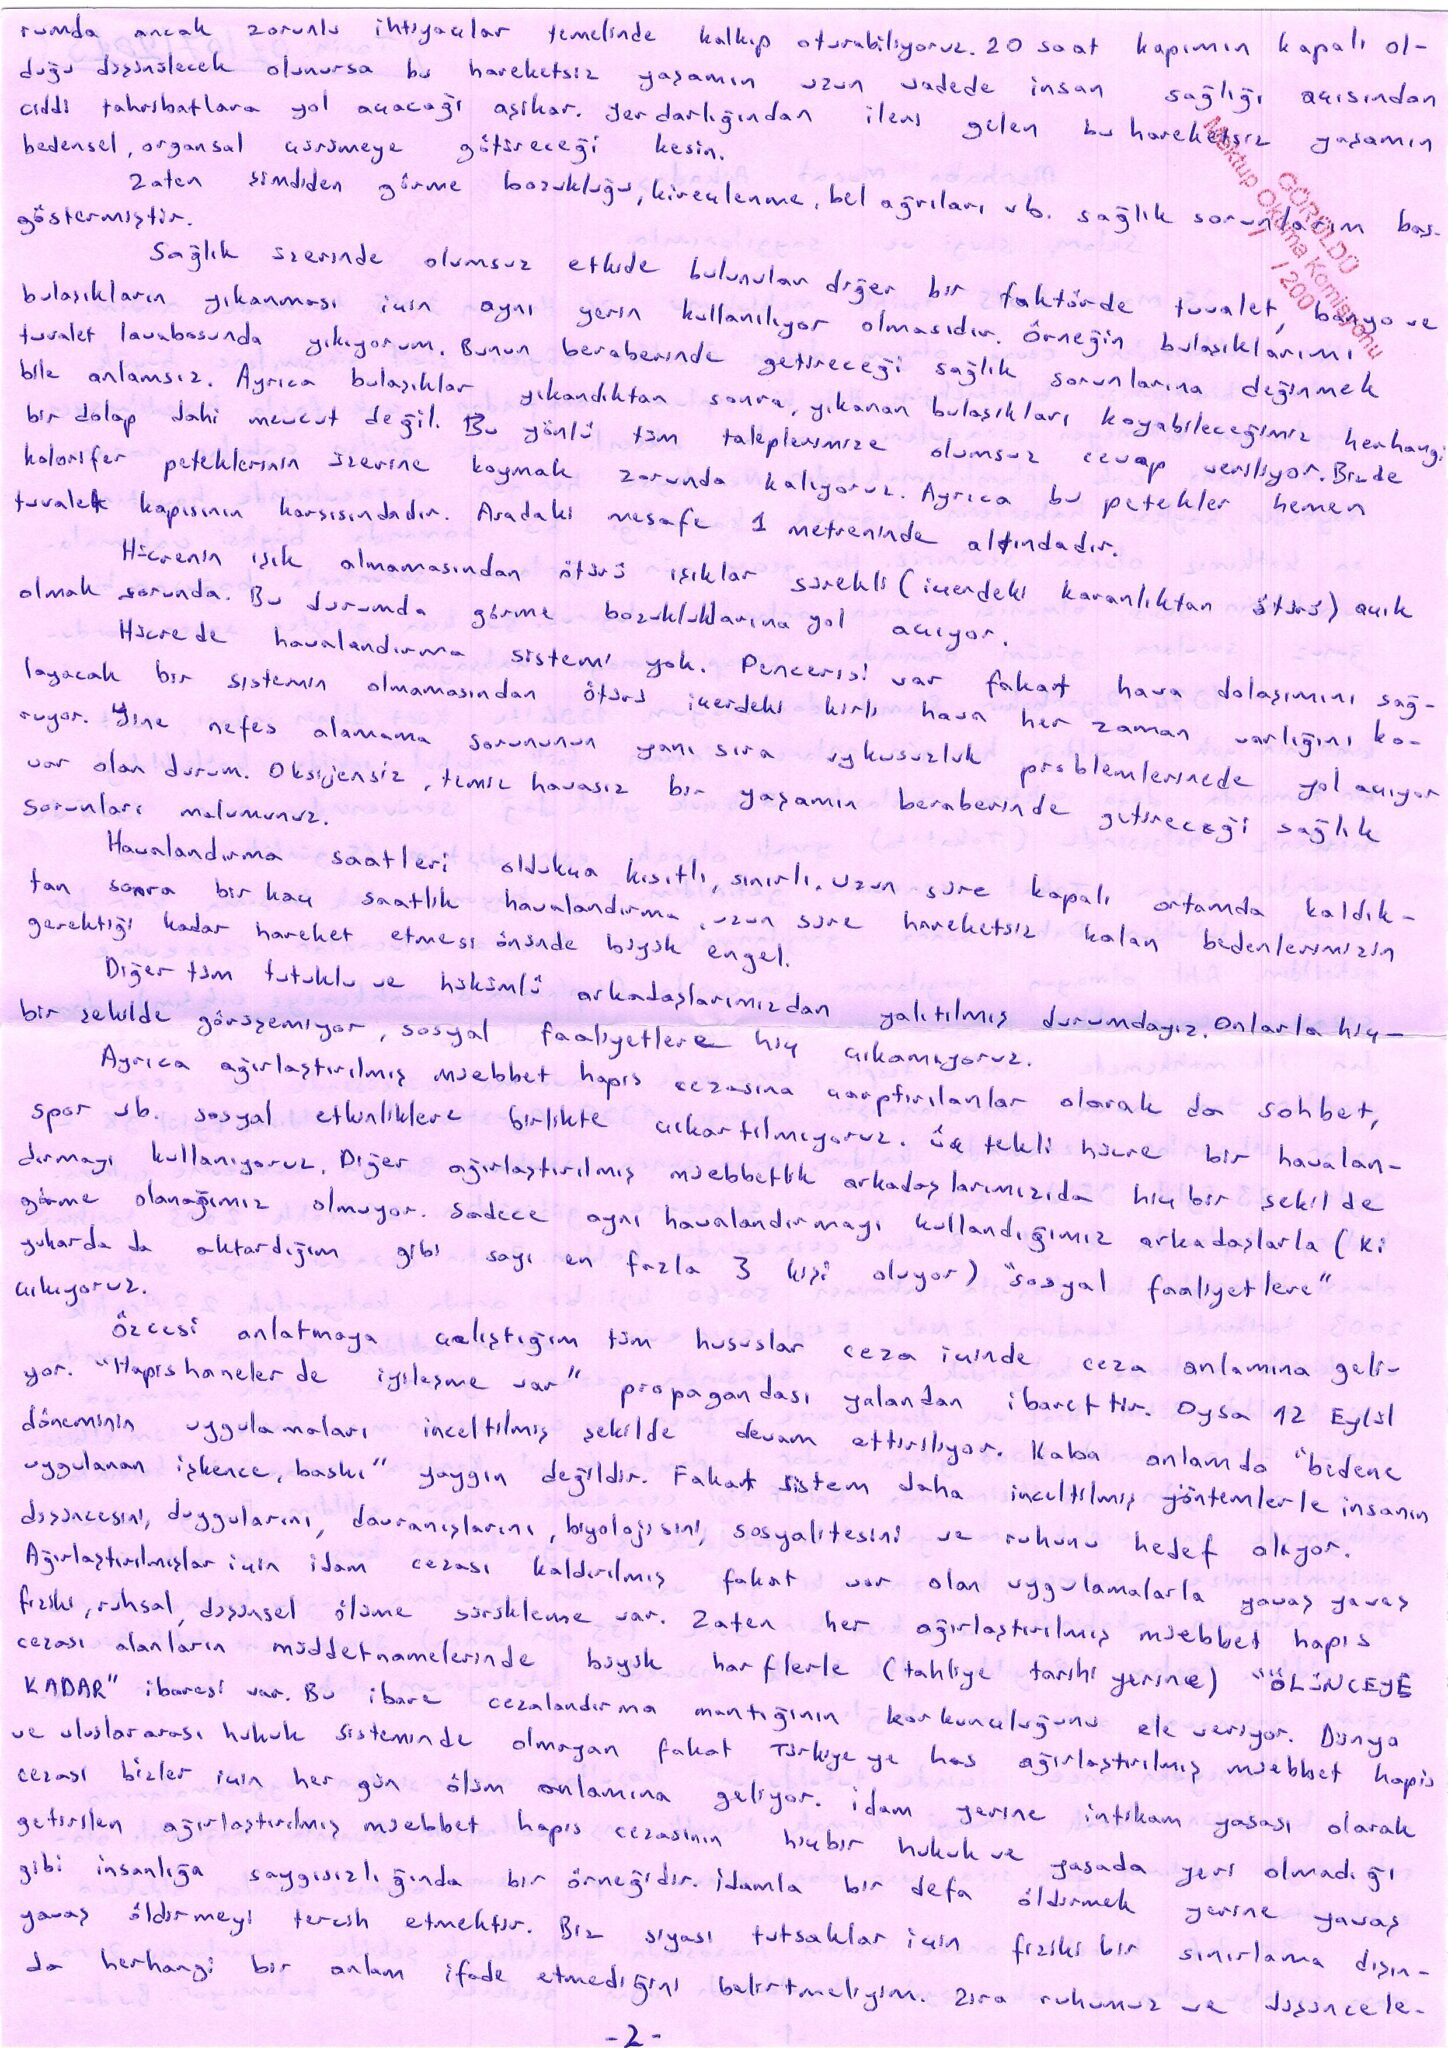 rumda ancak zorunlu ihtiyaçlar temelinde kalkıp oturabiliyoruz. 20 saat kapımın kapalı ol-
duğu düşünülecek olunursa bu hareketsiz yaşamın uzun vadede insan sağlığı açısından
ciddi tahribatlara yol açacağı aşikar. Yer darlığından ileri gelen bu hareketsiz yaşamın
bedensel, organsal çürümeye götüreceği kesin.
Zaten şimdiden görme bozukluğu, kireçlenme, bel ağrıları vb. sağlık sorunlarım baş-
göstermiştir.
GÖRÜLDÜ
Mektup Okuma Komisyonu
/ / 200
Sağlık üzerinde olumsuz etkide bulunulan diğer bir faktörde tuvalet, banyo ve
bulaşıkların yıkanması için aynı yerin kullanılıyor olmasıdır. Örneğin bulaşıklarımı
tuvalet lavabosunda yıkıyorum. Bunun beraberinde getireceği sağlık sorunlarına değinmek
bile anlamsız. Ayrıca bulaşıklar yıkandıktan sonra, yıkanan bulaşıkları koyabileceğimiz herhangi
bir dolap dahi mevcut değil. Bu yönlü tüm taleplerimize olumsuz cevap veriliyor. Bizde
kalorifer peteklerinin üzerine koymak zorunda kalıyoruz. Ayrıca bu petekler hemen
tuvalet kapısının karşısındadır. Aradaki mesafe 1 metreninde altındadır.
Hücrenin ışık almamasından ötürü ışıklar sürekli (içerdeki karanlıktan ötürü) açık
olmak zorunda. Bu durumda görme bozukluklarına yol açıyor.
Hücrede havalandırma sistemi yok. Penceresi var fakat hava dolaşımını sağ-
layacak bir sistemin olmamasından ötürü içerdeki kirli hava her zaman varlığını ko-
ruyor. Yine nefes alamama sorununun yanı sıra uykusuzluk problemlerinede yol açıyor
var olan durum. Oksijensiz, temiz havasız bir yaşamın beraberinde getireceği sağlık
sorunları malumunuz.
Havalandırma saatleri oldukça kısıtlı, sınırlı. Uzun süre kapalı ortamda kaldık-
tan sonra bir kaç saatlik havalandırma, uzun süre hareketsiz kalan bedenlerimizin
gerektiği kadar hareket etmesi önünde büyük engel.
Diğer tüm tutuklu ve hükümlü arkadaşlarımızdan yalıtılmış durumdayız. Onlarla hiç-
bir şekilde görüşemiyor, sosyal faaliyetlere hiç çıkamıyoruz.
Ayrıca ağırlaştırılmış müebbet hapis cezasına çarptırılanlar olarak da sohbet,
spor vb. sosyal etkinliklere birlikte çıkartılmıyoruz. Üç tekli hücre bir havalan-
dırmayı kullanıyoruz. Diğer ağırlaştırılmış müebbetlik arkadaşlarımızıda hiçbir şekilde
görme olanağımız olmuyor. Sadece aynı havalandırmayı kullandığımız arkadaşlarla (ki
yukarda da aktardığım gibi sayı en fazla 3 kişi oluyor) "sosyal faaliyetlere"
çıkıyoruz.
Özcesi anlatmaya çalıştığım tüm hususlar ceza içinde ceza anlamına geli-
yor. "Hapishanelerde iyileşme var" propagandası yalandan ibarettir. Oysa 12 Eylül
döneminin uygulamaları inceltilmiş şekilde devam ettiriliyor. Kaba anlamda "bedene
uygulanan işkence, baskı" yaygın değildir. Fakat sistem daha inceltilmiş yöntemlerle insanın
düşüncesini, duygularını, davranışlarını, biyolojisini, sosyalitesini ve ruhunu hedef alıyor.
Ağırlaştırılmışlar için idam cezası kaldırılmış fakat var olan uygulamalarla yavaş yavaş
fiziki, ruhsal, düşünsel ölüme sürükleme var. Zaten her ağırlaştırılmış müebbet hapis
cezası alanların müddetnamelerinde büyük harflerle (tahliye tarihi yerine) "ÖLÜNCEYE
KADAR" ibaresi var. Bu ibare cezalandırma mantığının korkunçluğunu ele veriyor. Dünya
ve uluslararası hukuk sisteminde olmayan fakat Türkiye'ye has ağırlaştırılmış müebbet hapis
cezası bizler için her gün ölüm anlamına geliyor. İdam yerine intikam yasası olarak
getirilen ağırlaştırılmış müebbet hapis cezasının hiçbir hukuk ve yasada yeri olmadığı
gibi insanlığa saygısızlığında bir örneğidir. İdamla bir defa öldürmek yerine yavaş
yavaş öldürmeyi tercih etmektir. Biz siyasi tutsaklar için fiziki bir sınırlama dışın-
da herhangi bir anlam ifade etmediğini belirtmeliyim. Zira ruhumuz ve düşüncele-
-2-